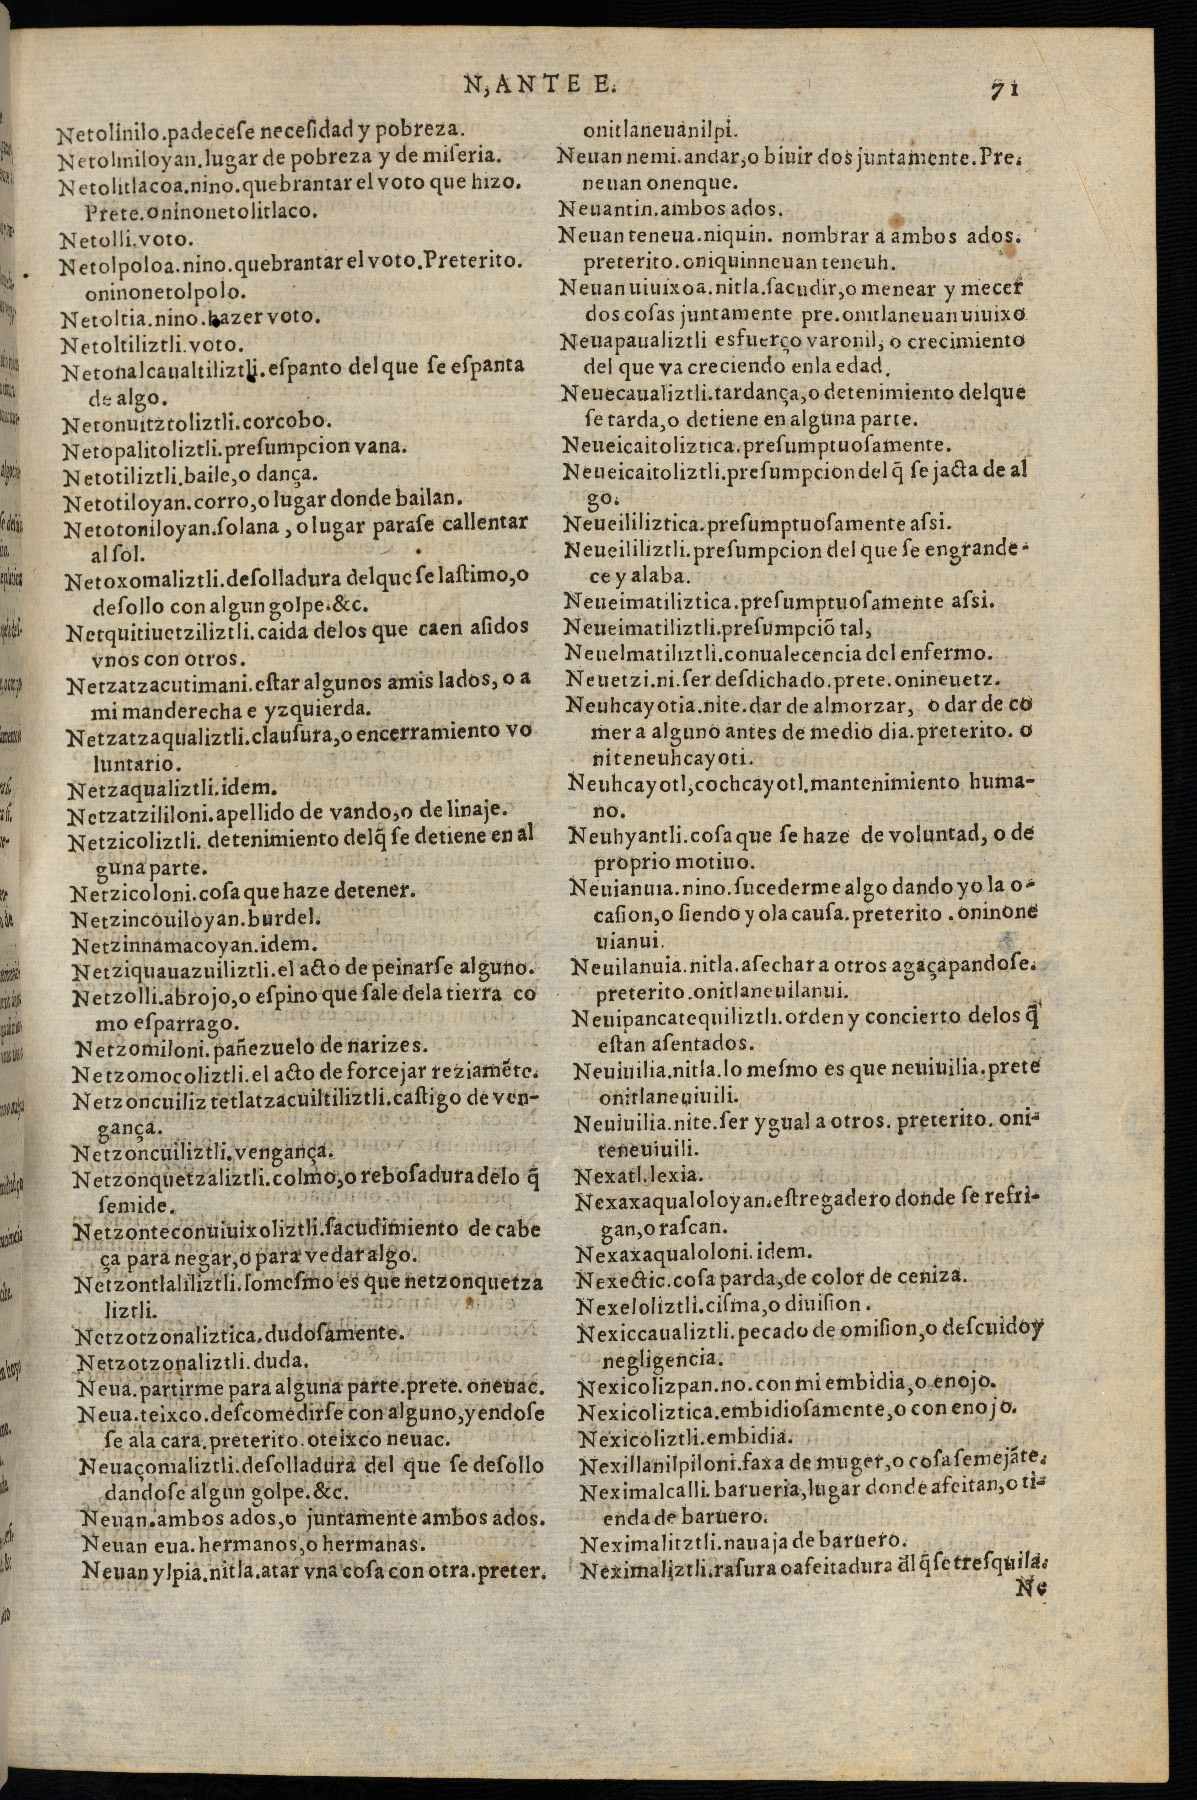 N, ANTE E.
71
Netolinilo.padeceſe neceſidad y pobreza.
Netoliniloyan.lugar de pobreza y de miſeria.
Netolitlacoa.nino.quebrantar el voto que hizo.
Prete.oninonetolitlaco.
Netolli.voto.
Netolpoloa.nino.quebrantar el voto.Preterito.
oninonetolpolo.
Netoltia.nino.hazer voto.
Netoltiliztli.voto.
Netonalcaualtiliztli.eſpanto del que ſe eſpanta
de algo.
Netonuitztoliztli.corcobo.
Netopalitoliztli.preſumpcion vana.
Netotiliztli.baile,o dança.
Netotiloyan.corro,o lugar donde bailan.
Netotoniloyan.ſolana , o lugar paraſe callentar
al ſol.
Netoxomaliztli.deſolladura delque ſe laſtimo,o
deſollo con algun golpe.&c.
Netquitiuetziliztli.caida delos que caen aſidos
vnos con otros.
Netzatzacutimani.eſtar algunos amis lados, o a
mi manderecha e yzquierda.
Netzatzaqualiztli.clauſura,o encerramiento vo
luntario.
Netzaqualiztli.idem.
Netzatzililoni.apellido de vando,o de linaje.
Netzicoliztli. detenimiento delq̃ ſe detiene en al
guna parte.
Netzicoloni.coſa que haze detener.
Netzincouiloyan.burdel.
Netzinnamacoyan.idem.
Netziquauazuiliztli.el acto de peinarſe alguno.
Netzolli.abrojo,o eſpino que ſale dela tierra co
mo eſparrago.
Netzomiloni.pañezuelo de narizes.
Netzomocoliztli.el acto de forcejar reziamẽte.
Netzoncuiliz tetlatzacuiltiliztli.caſtigo de ven-
gança.
Netzoncuiliztli.vengança.
Netzonquetzaliztli.colmo,o reboſadura delo q̃
ſemide.
Netzonteconuiuixoliztli.ſacudimiento de cabe
ça para negar,o para vedar algo.
Netzontlaliliztli.lomeſmo es que netzonquetza
liztli.
Netzotzonaliztica.dudoſamente.
Netzotzonaliztli.duda.
Neua.partirme para alguna parte.prete. oneuac.
Neua.teixco.deſcomedirſe con alguno,yendoſe
ſe ala cara.preterito.oteixco neuac.
Neuaçomaliztli.deſolladura del que ſe deſollo
dandoſe algun golpe.&c.
Neuan.ambos ados,o juntamente ambos ados.
Neuan eua.hermanos,o hermanas.
Neuan ylpia.nitla.atar vna coſa con otra.preter.
onitlaneuanilpi.
Neuan nemi.andar,o biuir dos juntamente.Pre.
neuan onenque.
Neuantin.ambos ados.
Neuan teneua.niquin. nombrar a ambos ados.
preterito.oniquinneuan teneuh.
Neuan uiuixoa.nitla.ſacudir,o menear y mecer
dos coſas juntamente pre.onitlaneuan uiuixo
Neuapaualiztli esfuerço varonil, o crecimiento
del que va creciendo enla edad.
Neuecaualiztli.tardança,o detenimiento delque
ſe tarda,o detiene en alguna parte.
Neueicaitoliztica.preſumptuoſamente.
Neueicaitoliztli.preſumpcion del q̃ ſe jacta de al
go.
Neueililiztica.preſumptuoſamente aſsi.
Neueililiztli.preſumpcion del que ſe engrande-
ce y alaba.
Neueimatiliztica.preſumptuoſamente aſsi.
Neueimatiliztli.preſumpciõ tal,
Neuelmatiliztli.conualecencia del enfermo.
Neuetzi.ni.ſer deſdichado.prete.onineuetz.
Neuhcayotia.nite.dar de almorzar, o dar de co
mer a alguno antes de medio dia.preterito. o
niteneuhcayoti.
Neuhcayotl,cochcayotl.mantenimiento huma-
no.
Neuhyantli.coſa que ſe haze de voluntad, o de
proprio motiuo.
Neuianuia.nino.ſucederme algo dando yo la o-
caſion,o ſiendo yola cauſa.preterito .oninone
uianui.
Neuilanuia.nitla.aſechar a otros agaçapandoſe.
preterito.onitlaneuilanui.
Neuipancatequiliztli.orden y concierto delos q̃
eſtan aſentados.
Neuiuilia.nitla.lo meſmo es que neuiuilia.prete
onitlaneuiuili.
Neuiuilia.nite.ſer ygual a otros. preterito. oni-
teneuiuili.
Nexatl.lexia.
Nexaxaqualoloyan.eſtregadero donde ſe refri-
gan,o raſcan.
Nexaxaqualoloni.idem.
Nexectic.coſa parda,de color de ceniza.
Nexeloliztli.ciſma,o diuiſion.
Nexiccaualiztli.pecado de omiſion,o deſcuidoy
negligencia.
Nexicolizpan.no.con mi embidia,o enojo.
Nexicoliztica.embidioſamente,o con enojo.
Nexicoliztli.embidia.
Nexillanilpiloni.faxa de muger,o coſa ſemejãte.
Neximalcalli.barueria,lugar donde afeitan,o ti-
enda de baruero.
Neximalitztli.nauaja de baruero.
Neximaliztli.raſura oafeitadura d̃l q̃ſe treſquila.
Ne